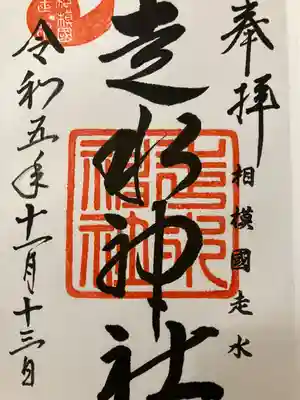 奉拝
相模國走水
走水神社
走水神社
令和五年十一月十三日